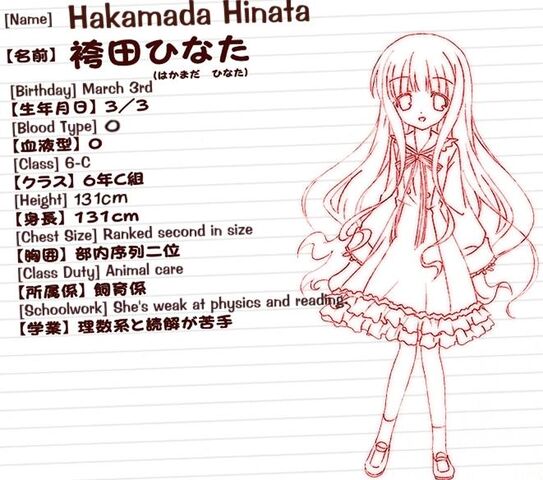 [Name] Hakamada Hinata
【名前】袴田ひなた
(はかまだ ひなた)
[Birthday] March 3rd
【生年月日】3／3
[Blood Type] O
【血液型】O
[Class] 6-C
【クラス】6年C組
[Height] 131cm
【身長】131cm
[Chest Size] Ranked second in size
【胸囲】部内序列二位
[Class Duty] Animal care
【所属係】飼育係
[Schoolwork] She's weak at physics and reading.
【学業】理数系と読解が苦手